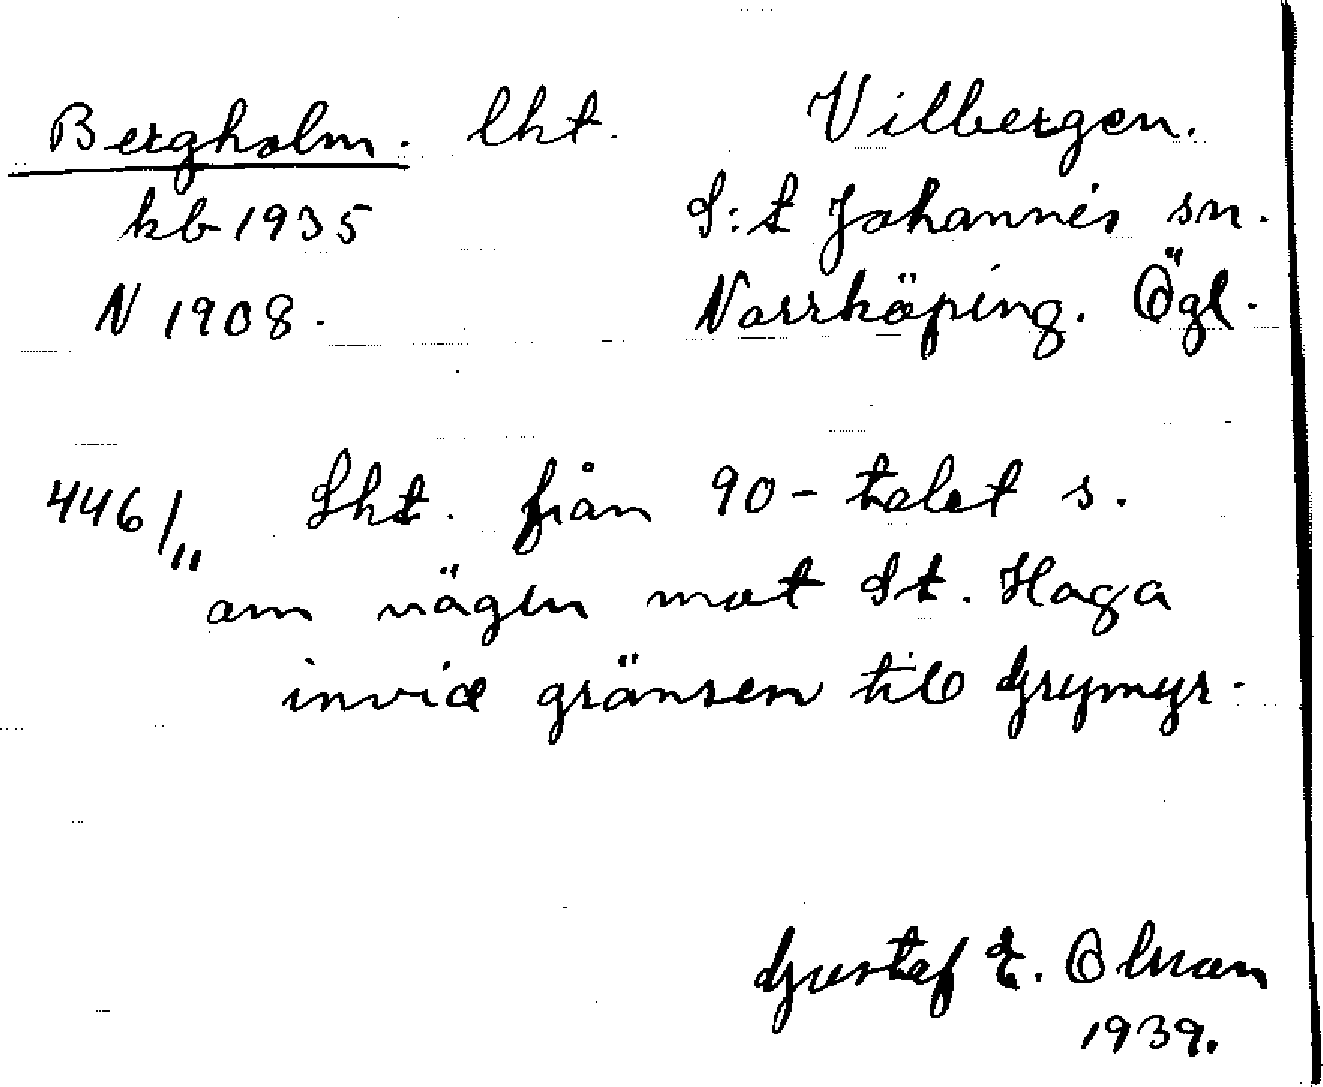 Bergholm. lht. Vilbergen.
kb 1935 S:t Johannes sn.
N 1908. Norrköping. Ögl.
446/11 Lht. från 90-talet s.
om vägen mot St. Haga
invid gränsen till Grymyr.
Gustaf E. Olsson
1939.